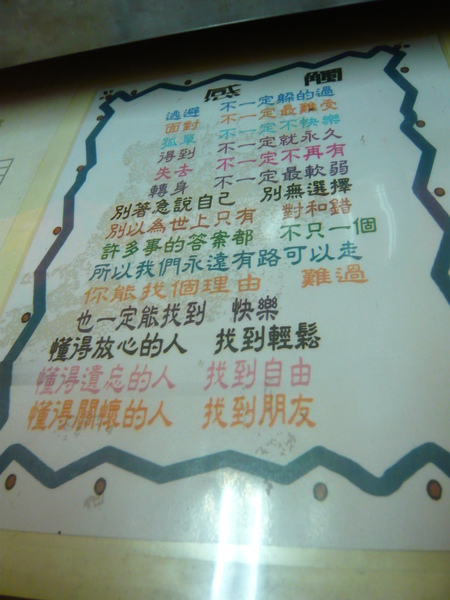 感觸
逃避 不一定躲的過
面對 不一定最難受
孤單 不一定不快樂
得到 不一定就永久
失去 不一定不再有
轉身 不一定最軟弱
別著急說自己 別無選擇
別以為世上只有 對和錯
許多事的答案都 不只一個
所以我們永遠有路可以走
你能找個理由 難過
也一定能找到 快樂
懂得放心的人 找到輕鬆
懂得遺忘的人 找到自由
懂得關懷的人 找到朋友